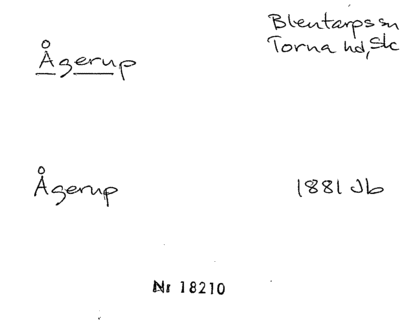 Ågerup
Blentarps sn
Torna hd, Sk
Ågerup
1881 Jb
Nr 18210